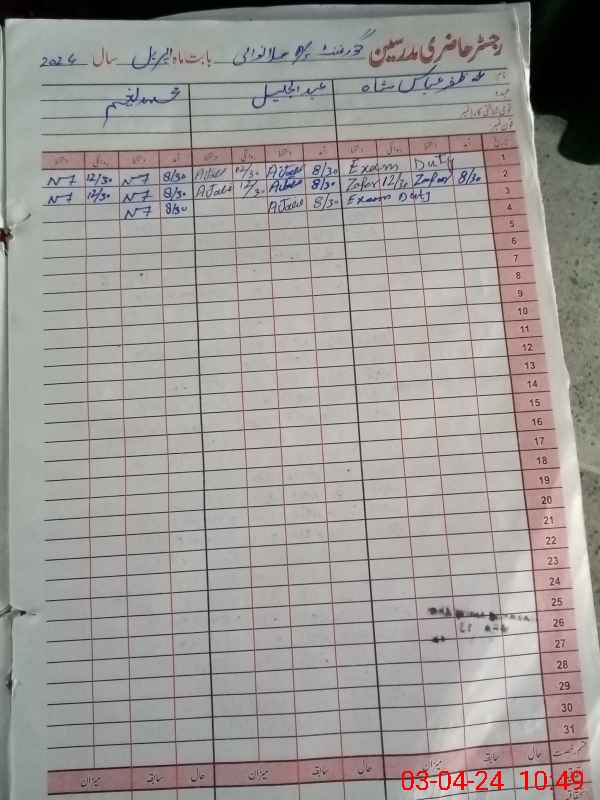 رجسٹر حاضری مدرسین گورنمنٹ بابت ماہ اپریل سال 2024
نام ظفر عباس شاہ عبدالجلیل
عہدہ
قومی شناختی کارڈ نمبر
فون نمبر
تاریخ آمد دستخط روانگی دستخط آمد دستخط روانگی دستخط آمد دستخط روانگی دستخط
1 Exam Duty 8/30 AJalil 12/30 AJalil 8/30 N7 12/30 N7
2 8/30 Zafar 12/30 Zafar 8/30 AJalil 12/30 AJalil 8/30 N7 12/30 N7
3 Exam Duty 8/30 AJalil 8/30 N7
4
5
6
7
8
9
10
11
12
13
14
15
16
17
18
19
20
21
22
23
24
25
26
27
28
29
30
31
حال سابقہ میزان حال سابقہ میزان حال سابقہ میزان
03-04-24 10:49